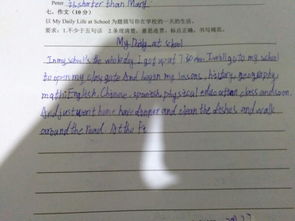 Peter is shorter than Mary.
七、作文（10分）
以 My Daily Life at School 为题描写你在学校的一天的生活。
要求：1.不少于五句话 2.条理清楚，意思连贯，标点正确，书写规范。
My Daily at school
In my school's the whole day. I got up at 7:00 Am. I will go to my school
to open my class gate And began my lessons, history, geography
math, English, Chinese, spanish, physical education class and soon.
And just went home have danper and clean the dishes and walk
around the road. At the